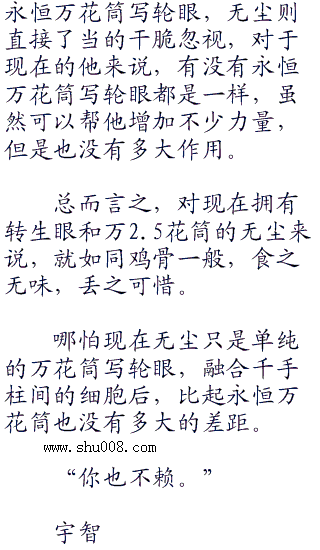 永恒万花筒写轮眼，无尘则
直接了当的干脆忽视，对于
现在的他来说，有没有永恒
万花筒写轮眼都是一样，虽
然可以帮他增加不少力量，
但是也没有多大作用。
总而言之，对现在拥有
转生眼和万2.5花筒的无尘来
说，就如同鸡骨一般，食之
无味，丢之可惜。
哪怕现在无尘只是单纯
的万花筒写轮眼，融合千手
柱间的细胞后，比起永恒万
花筒也没有多大的差距。
www.shu008.com
“你也不赖。”
宇智